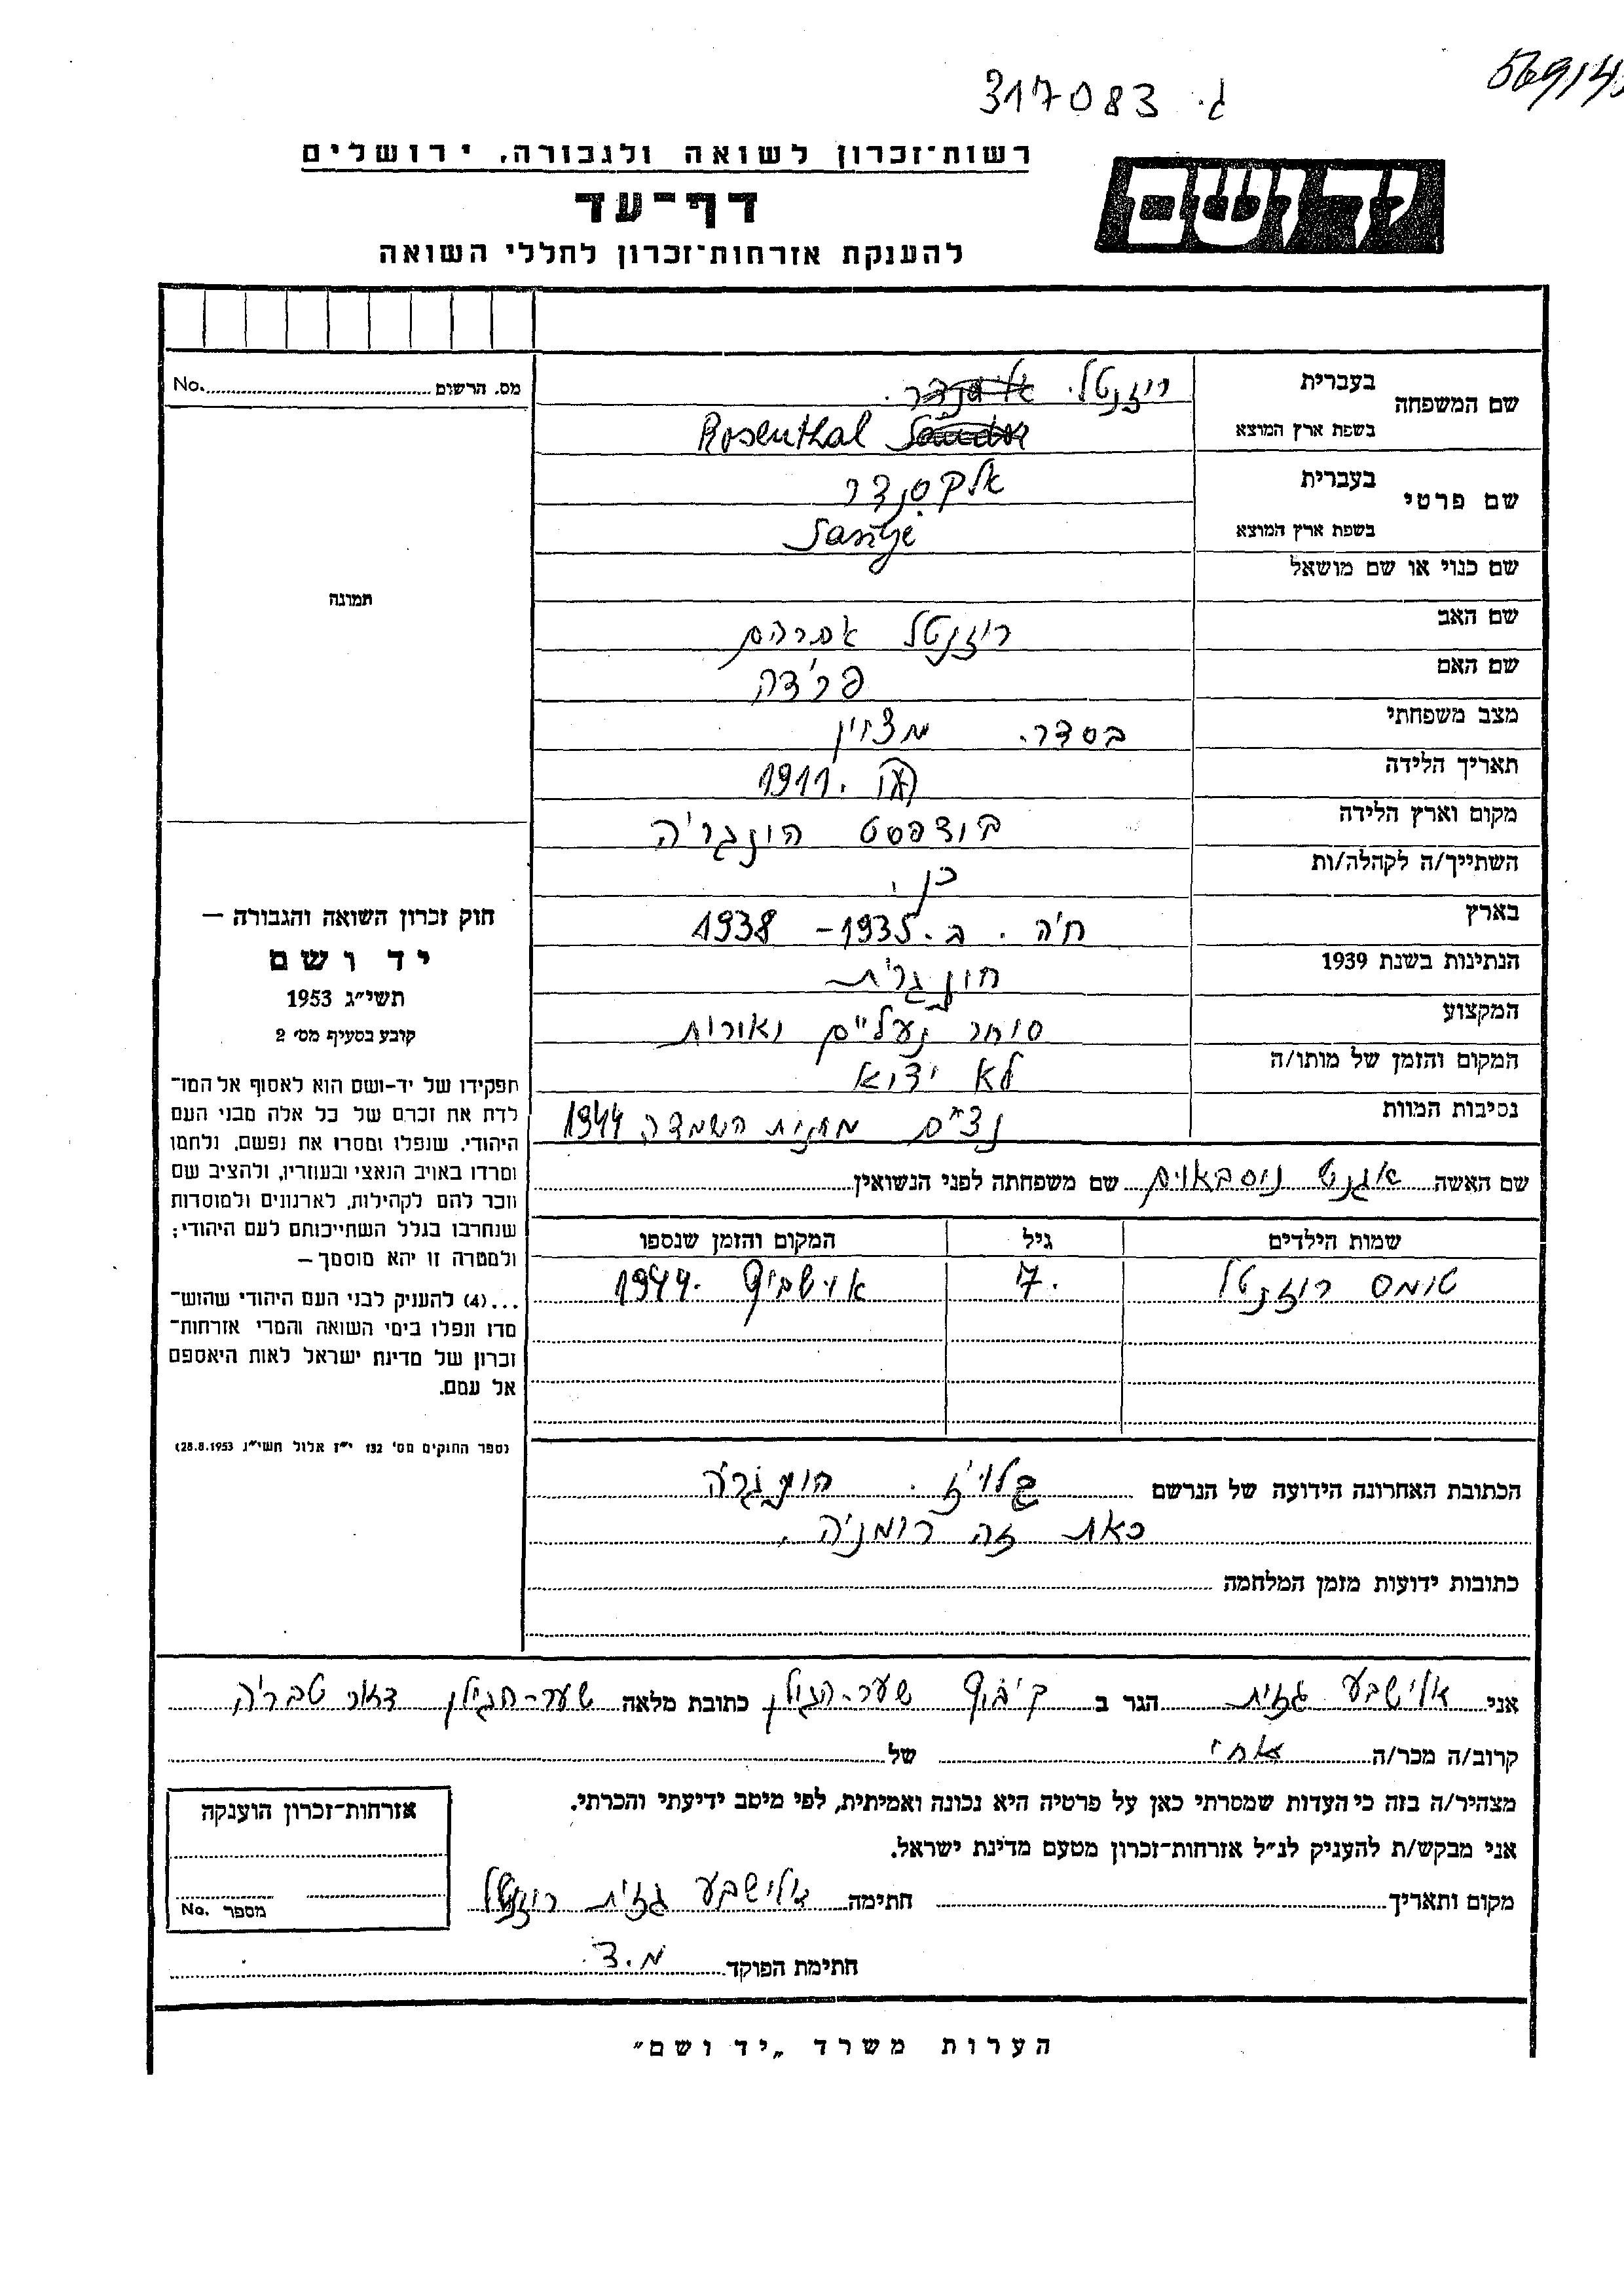 ג. 317083
56914
רשות־זכרון לשואה ולגבורה, ירושלים
יד ושם
דף־עד
להענקת אזרחות־זכרון לחללי השואה
מס. הרשום No.
שם המשפחה
בעברית רוזנטל.
בשפת ארץ המוצא Rosenthal
שם פרטי
בעברית אלקסנדר
בשפת ארץ המוצא
שם כנוי או שם מושאל
תמונה
שם האב רוזנטל אברהם
שם האם פרידה
מצב משפחתי בסדר. מצוין
תאריך הלידה 1911.
מקום וארץ הלידה בודפסט הונגריה
השתייך/ה לקהלה/ות כן.
בארץ חיה. ב. 1935 – 1938
הנתינות בשנת 1939 הונגרית
המקצוע סוחר נעליים ואורות
המקום והזמן של מותו/ה לא ידוע
נסיבות המוות מחנות השמדה 1944
חוק זכרון השואה והגבורה —
יד ושם
תשי״ג 1953
קובע בסעיף מס׳ 2
תפקידו של יד-ושם הוא לאסוף אל המו־
לדת את זכרם של כל אלה מבני העם
היהודי, שנפלו ומסרו את נפשם, נלחמו
ומרדו באויב הנאצי ובעוזריו, ולהציב שם
וזכר להם לקהילות, לארגונים ולמוסדות
שנחרבו בגלל השתייכותם לעם היהודי;
ולמטרה זו יהא מוסמך —
...(4) להעניק לבני העם היהודי שהוש־
מדו ונפלו בימי השואה והמרי אזרחות־
זכרון של מדינת ישראל לאות היאספם
אל עמם.
(ספר החוקים מס׳ 132 י״ז אלול תשי״ג 28.8.1953)
שם האשה אגנט נוסבאוים שם משפחתה לפני הנשואין
שמות הילדים גיל המקום והזמן שנספו
טומס רוזנטל 7. אושביץ 1944.
הכתובת האחרונה הידועה של הנרשם הונגריה
כאת זה רומניה.
כתובות ידועות מזמן המלחמה
אני אלישבע גזית הגר ב קיבוץ שער-הגולן כתובת מלאה שער-הגולן דאר טבריה
קרוב/ה מכר/ה אחי של
מצהיר/ה בזה כי העדות שמסרתי כאן על פרטיה היא נכונה ואמיתית, לפי מיטב ידיעתי והכרתי.
אני מבקש/ת להעניק לנ״ל אזרחות־זכרון מטעם מדינת ישראל.
מקום ותאריך חתימה אלישבע גזית רוזנטל
אזרחות־זכרון הוענקה
מספר No.
חתימת הפוקד מ.ד.
הערות משרד „יד ושם״